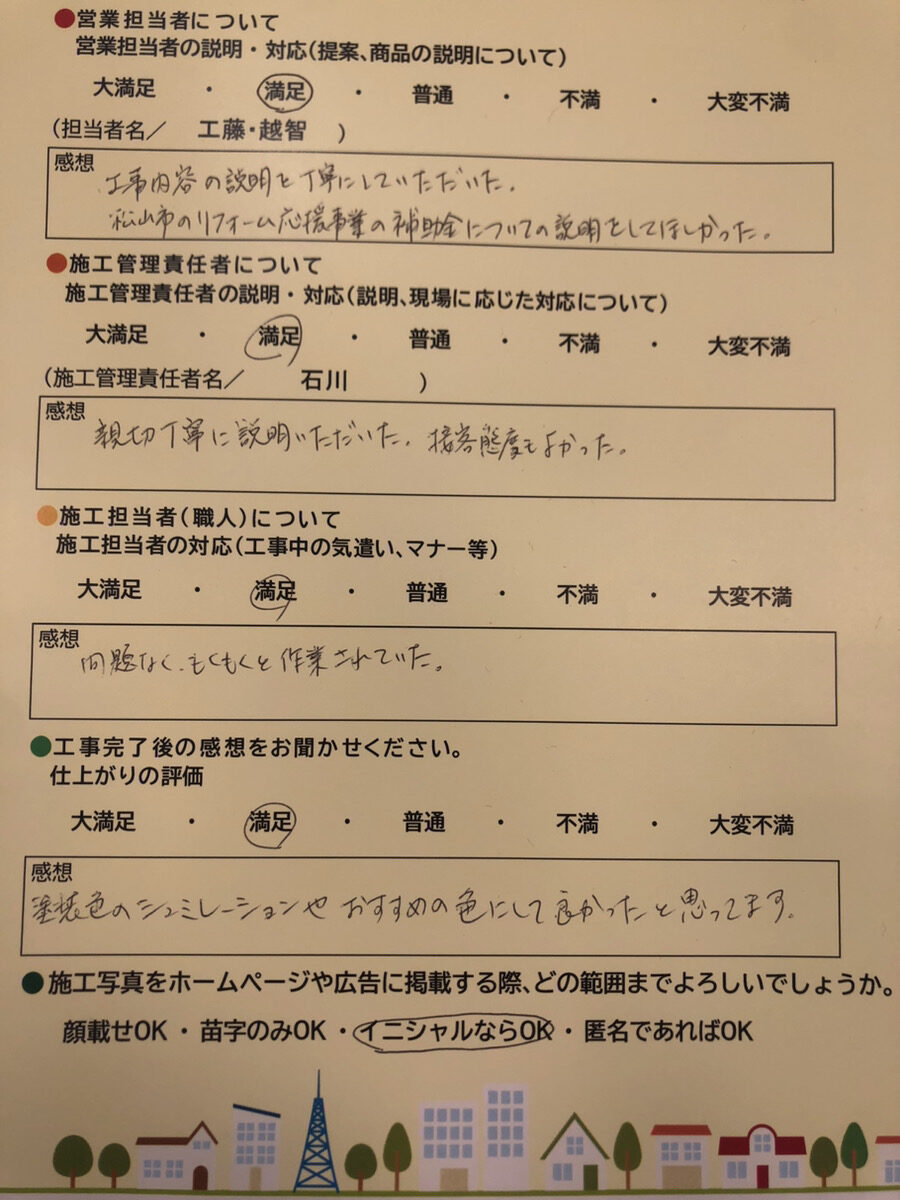 ●営業担当者について
営業担当者の説明・対応(提案、商品の説明について)
大満足 ・ 満足 ・ 普通 ・ 不満 ・ 大変不満
(担当者名/ 工藤・越智 )
感想
工事内容の説明を丁寧にしていただいた。
松山市のリフォーム応援事業の補助金についての説明をしてほしかった。
●施工管理責任者について
施工管理責任者の説明・対応(説明、現場に応じた対応について)
大満足 ・ 満足 ・ 普通 ・ 不満 ・ 大変不満
(施工管理責任者名/ 石川 )
感想
親切丁寧に説明いただいた。接客態度もよかった。
●施工担当者(職人)について
施工担当者の対応(工事中の気遣い、マナー等)
大満足 ・ 満足 ・ 普通 ・ 不満 ・ 大変不満
感想
問題なく、もくもくと作業されていた。
●工事完了後の感想をお聞かせください。
仕上がりの評価
大満足 ・ 満足 ・ 普通 ・ 不満 ・ 大変不満
感想
塗装色のシュミレーションや おすすめの色にして良かったと思ってます。
●施工写真をホームページや広告に掲載する際、どの範囲までよろしいでしょうか。
顔載せOK ・ 苗字のみOK ・ イニシャルならOK ・ 匿名であればOK